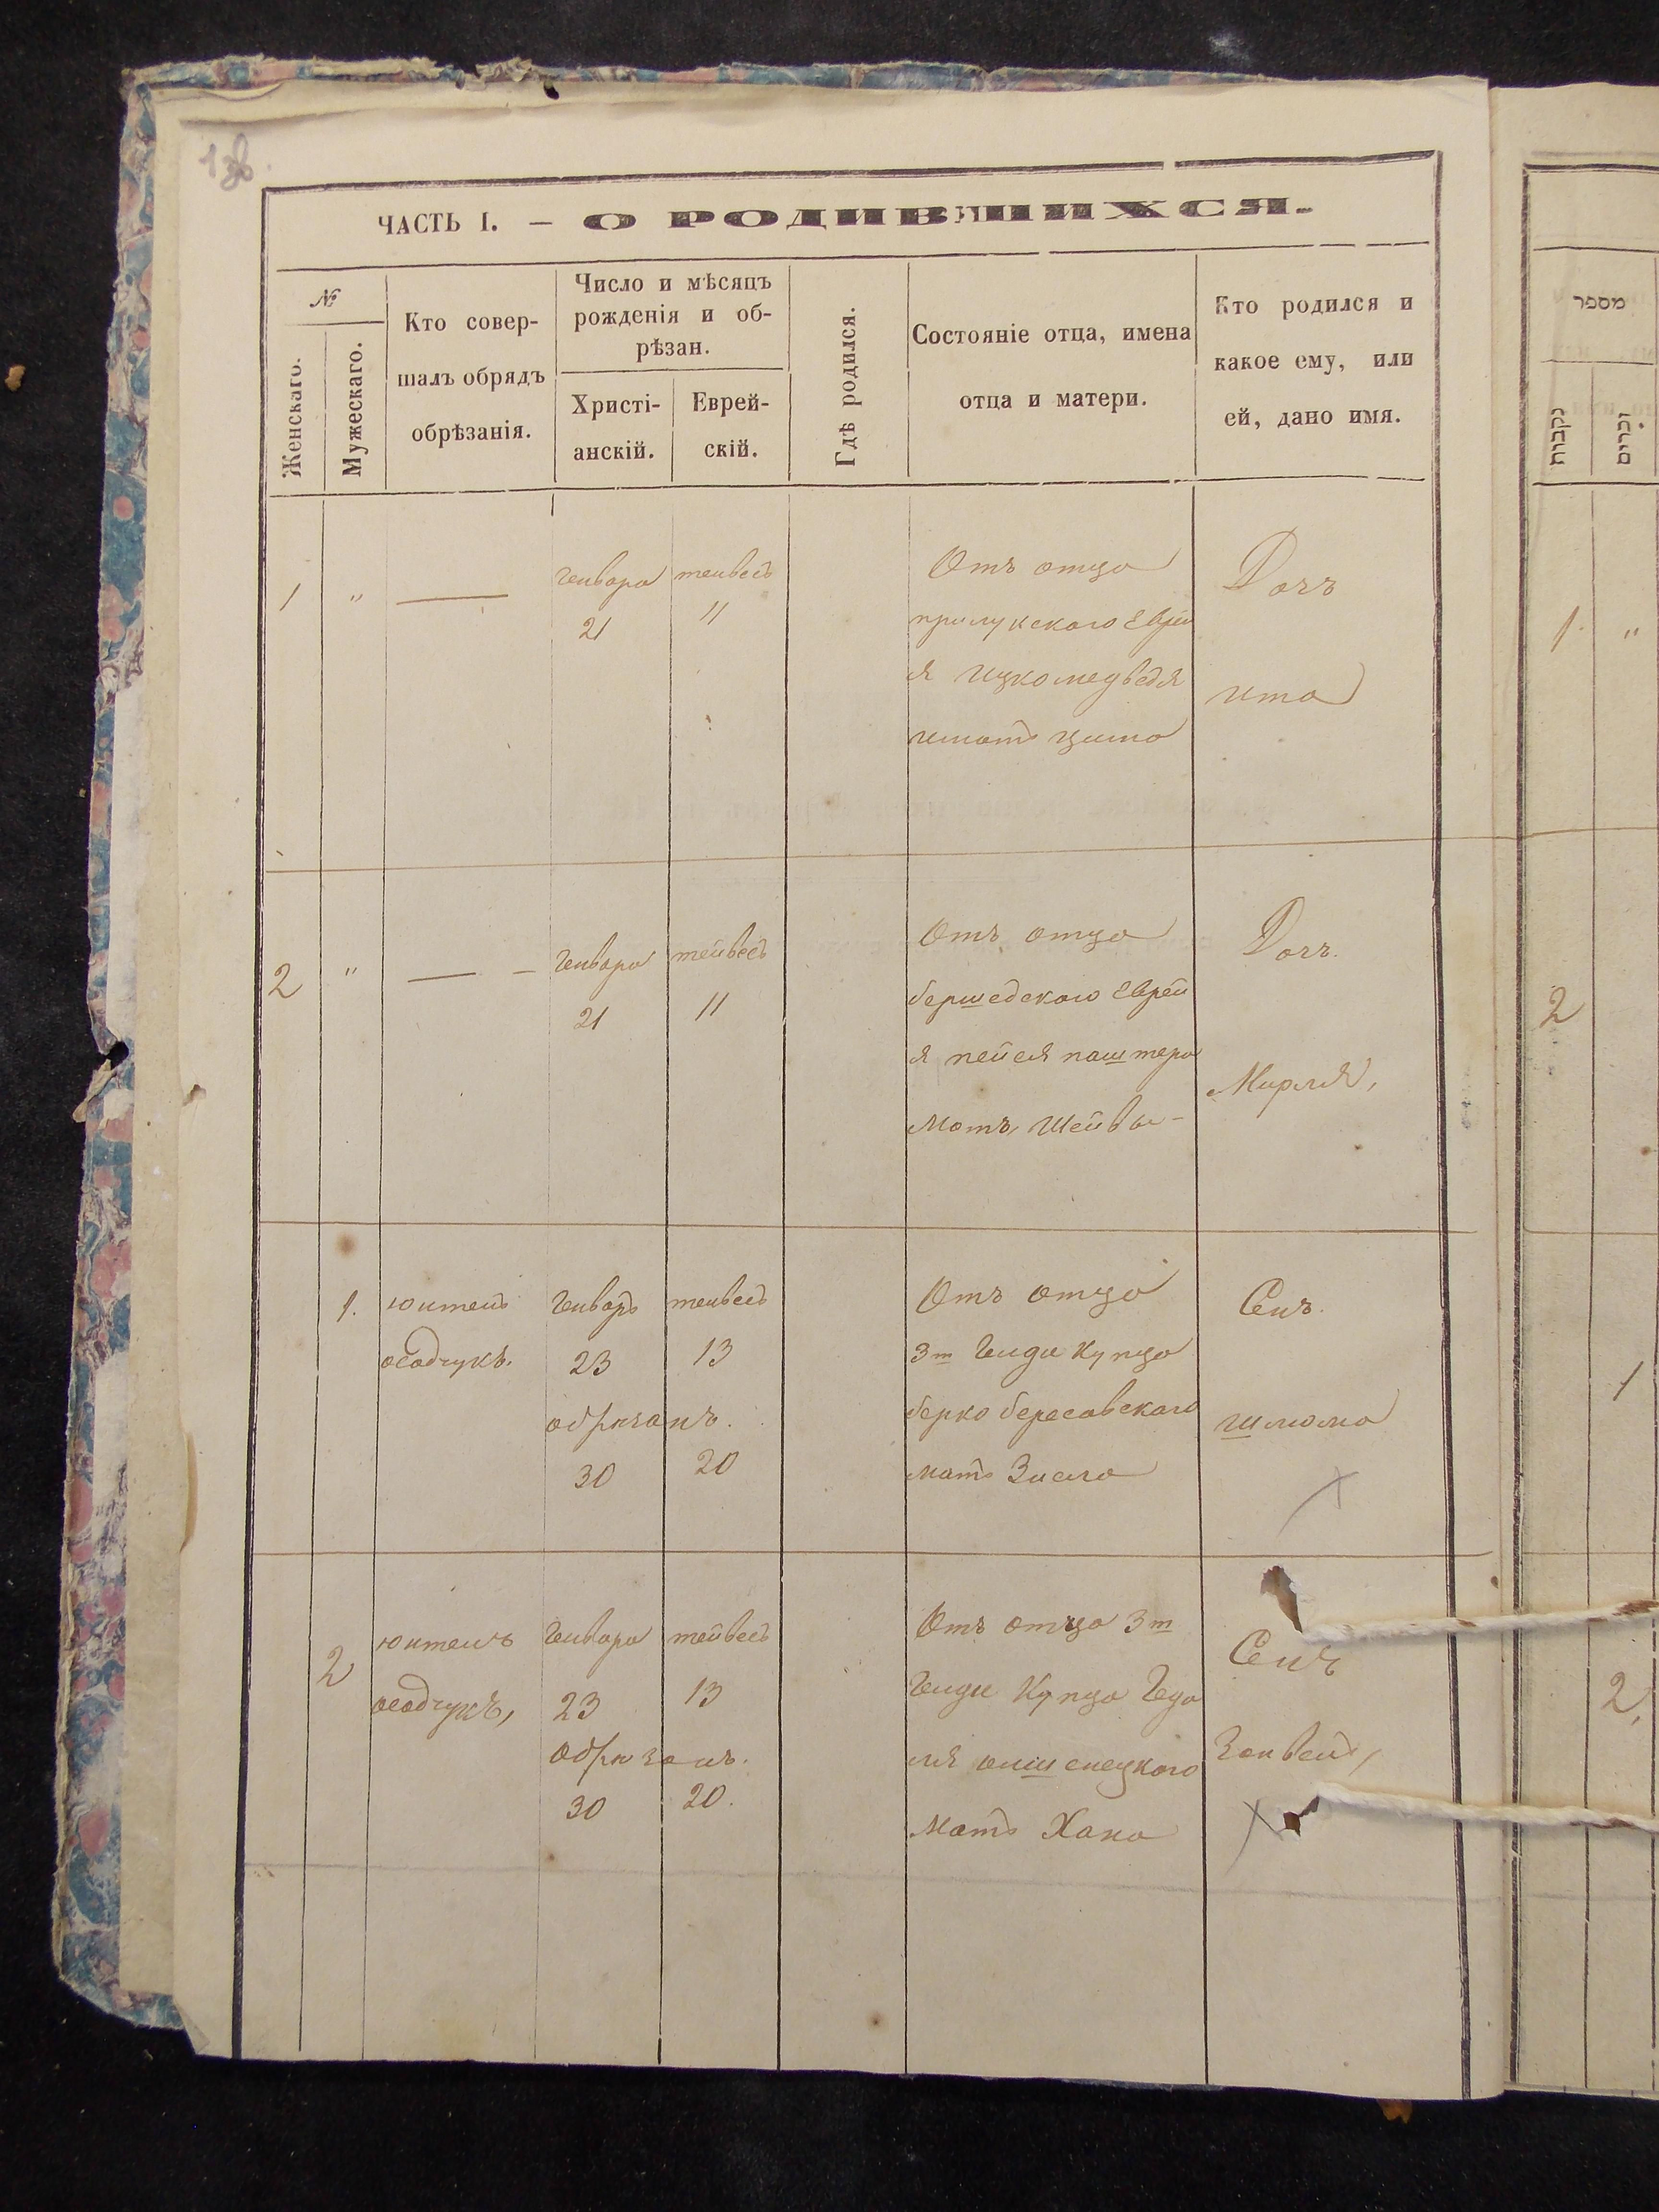 ЧАСТЬ I. — О РОДИВШИХСЯ.
№
Женскаго.
Мужескаго.
Кто совер-
шалъ обрядъ
обрѣзанія.
Число и мѣсяцъ
рожденія и об-
рѣзан.
Христі-
анскій.
Еврей-
скій.
Гдѣ родился.
Состояніе отца, имена
отца и матери.
Кто родился и
какое ему, или
ей, дано имя.
1 " — Генваря 21 тейвесъ 11
Отъ отца
прилукскаго Еврей
я Ицко медведя
Дочъ
ита
2 " — Генваря 21 тейвесъ 11
Отъ отца
бершедскаго Еврей
я пейся паштера
Мать, Шейва -
Дочъ.
Мирля,
1. юктель
осадчукъ.
Генваръ 23 тейвесъ 13
обризанъ.
30 20
Отъ отца
3т Гилди Купца
берко бересовскаго
мать Зисля
Сенъ.
шлюма
2 юктелъ
осадчукъ,
Генваря 23 тейвесъ 13
обризанъ.
30 20.
Отъ отца 3т
Гилди Купца Геда
ля
Мать Хана
Сенъ
Занвель,
מספר
נקבות
זכרים
1. "
2
1
2,